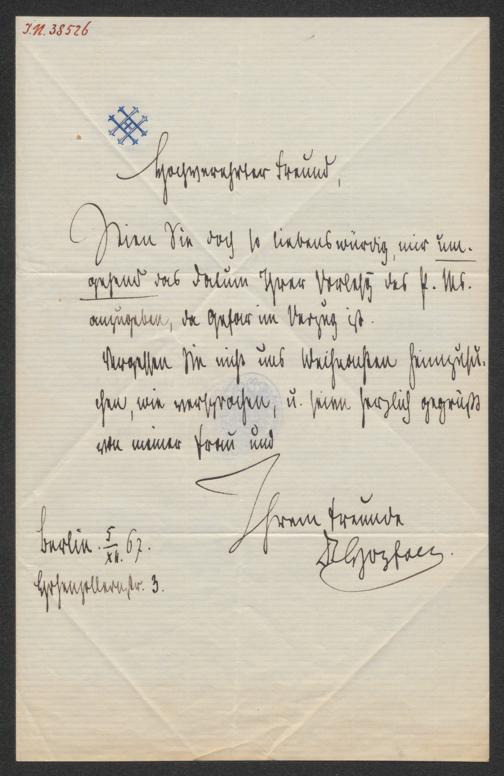 I.N. 38526
Hochverehrter Freund,
Seien Sie doch so liebenswürdig, mir um-
gehend das Datum Ihrer Vorlesg des P. Ms.
anzugeben, da Gefar im Verzug ist.
Vergessen Sie nicht uns Weihnachten heimzusu-
chen, wie versprochen, u. seien herzlich gegrüßt
von meiner Frau und
Ihrem Freunde
Berlin. 5/XII. 67.
Hohenzollernstr. 3.